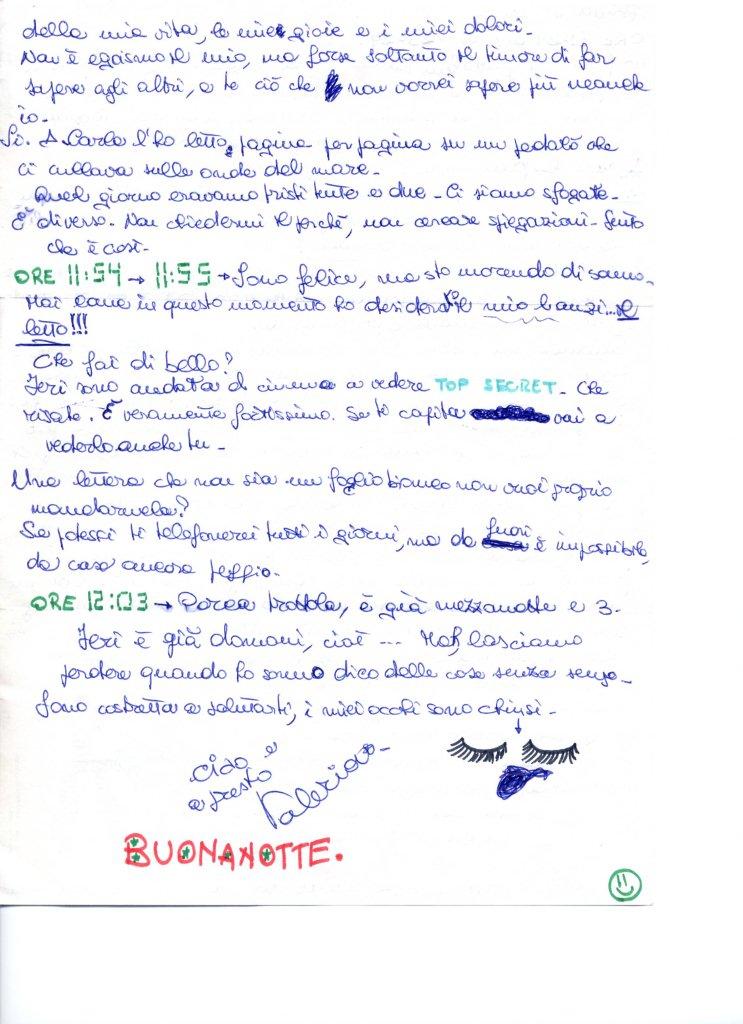 della mia vita, le mie gioie e i miei dolori.
Non è egoismo il mio, ma forse soltanto il timore di far
sapere agli altri, a te ciò che non vorrei sapere più neanche
io.
Sì. A Carla l'ho letto, pagina per pagina su un pedalò che
ci cullava sulle onde del mare.
Quel giorno eravamo tristi tutte e due. Ci siamo sfogate.
È diverso. Non chiedermi il perché, non cercare spiegazioni. Sento
che è così.
ORE 11:54 → 11:55 → Sono felice, ma sto morendo di sonno.
Mai come in questo momento ho desiderato il mio banzi...il
letto!!!
Che fai di bello?
Ieri sono andata al cinema a vedere TOP SECRET. Che
risate. È veramente fortissimo. Se ti capita vai a
vederlo anche tu.
Una lettera che non sia un foglio bianco non vuoi proprio
mandarmela?
Se potessi ti telefonerei tutti i giorni, ma da fuori è impossibile,
da casa ancora peggio.
ORE 12:03 → Porca trottola, è già mezzanotte e 3.
Ieri è già domani, cioè --- Mah, lasciamo
perdere quando ho sonno dico delle cose senza senso.
Sono costretta a salutarti, i miei occhi sono chiusi.
ciao e
a presto
Valeria
BUONANOTTE.